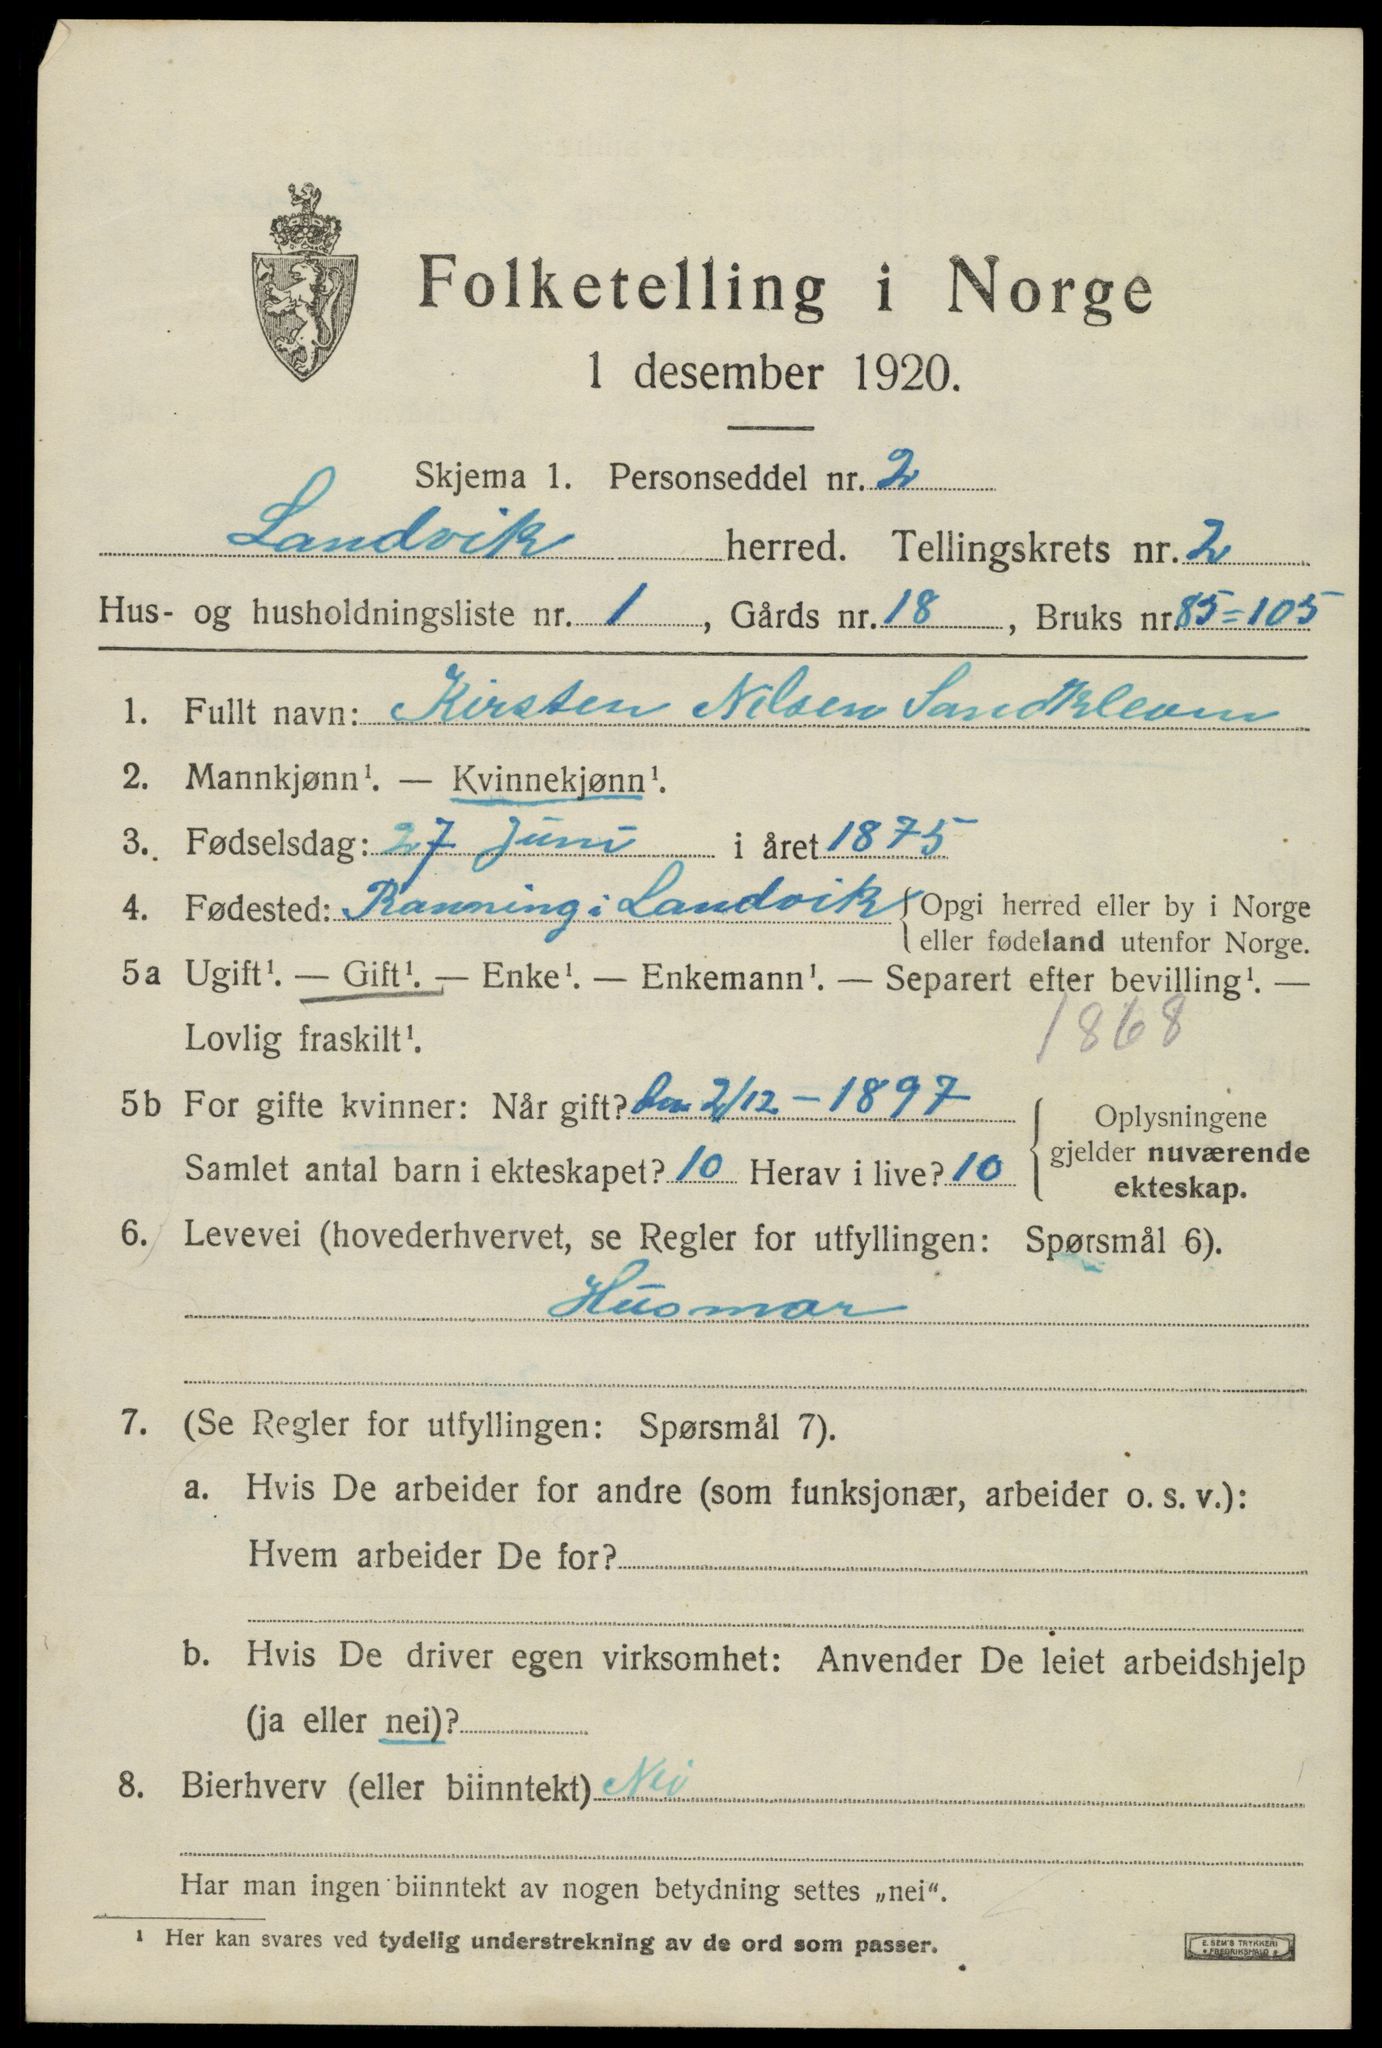 Folketelling i Norge
1 desember 1920.
Skjema 1. Personseddel nr. 2
Landvik herred. Tellingskrets nr. 2
Hus- og husholdningsliste nr. 1, Gårds nr. 18, Bruks nr. 85=105
1. Fullt navn: Kirsten Nilsen Sandkleven
2. Mannkjønn¹. — Kvinnekjønn¹.
3. Fødselsdag: 27 Juni i året 1875
4. Fødested: Ranning i Landvik { Opgi herred eller by i Norge
eller fødeland utenfor Norge.
5a Ugift¹. — Gift¹. — Enke¹. — Enkemann¹. — Separert efter bevilling¹. —
Lovlig fraskilt¹. 1868
5b For gifte kvinner: Når gift? den 2/12 – 1897
Samlet antal barn i ekteskapet? 10 Herav i live? 10
Oplysningene
gjelder nuværende
ekteskap.
6. Levevei (hovederhvervet, se Regler for utfyllingen: Spørsmål 6).
Husmor
7. (Se Regler for utfyllingen: Spørsmål 7).
a. Hvis De arbeider for andre (som funksjonær, arbeider o. s. v.):
Hvem arbeider De for?
b. Hvis De driver egen virksomhet: Anvender De leiet arbeidshjelp
(ja eller nei)?
8. Bierhverv (eller biinntekt) Nei
Har man ingen biinntekt av nogen betydning settes „nei“.
¹ Her kan svares ved tydelig understrekning av de ord som passer.
E. SEM'S TRYKKERI
FREDRIKSHALD